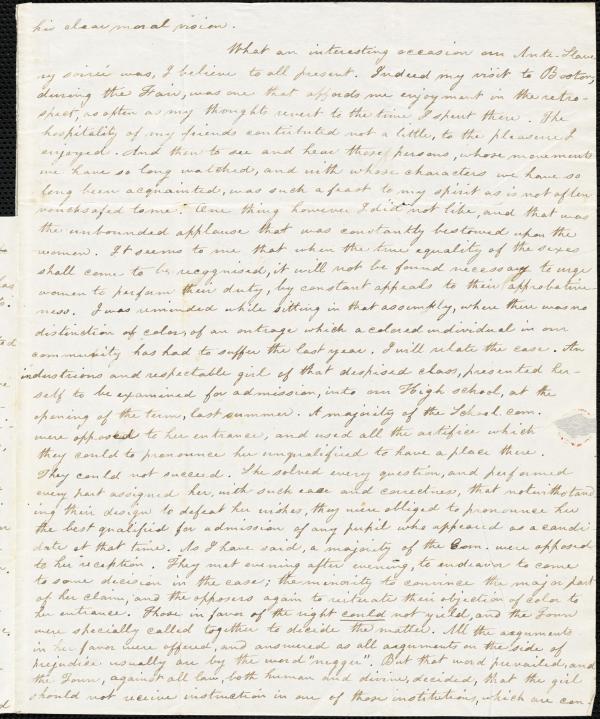 his clear moral vision.
What an interesting occasion our Anti-Slave
ry soirée was, I believe to all present. Indeed my visit to Boston,
during the Fair, was one that affords me enjoyment in the retro-
spect, as often as my thoughts revert to the time I spent there. The
hospitality of my friends contributed not a little, to the pleasure I
enjoyed. And then to see and hear those persons, whose movements
we have so long watched, and with whose characters we have so
long been acquainted, was such a feast to my spirit as is not often
vouchsafed to me. One thing however I did not like, and that was
the unbounded applause that was constantly bestowed upon the
women. It seems to me that when the true equality of the sexes
shall come to be recognised, it will not be found necessary to urge
women to perform their duty, by constant appeals to their approbative-
ness. I was reminded while sitting in that assembly, where there was no
distinction of color, of an outrage which a colored individual in our
community has had to suffer the last year. I will relate the case. An
industrious and respectable girl of that despised class, presented her-
self to be examined for admission, into our High school, at the
opening of the term, last summer. A majority of the School com.
were opposed to her entrance, and used all the artifice which
they could to pronounce her unqualified to have a place there.
They could not succeed. She solved every question, and performed
every part assigned her, with such ease and correctness, that notwithstand
ing their design to defeat her wishes, they were obliged to pronounce her
the best qualified for admission of any pupil who appeared as a candi
date at that time. As I have said, a majority of the Com. were opposed
to her reception. They met evening after evening, to endeavor to come
to some decision in the case; the minority to convince the major part
of her claim, and the opposers again to reiterate their objection of color to
her entrance. Those in favor of the right could not yield, and the Town
were specially called together to decide the matter. All the arguments
in her favor were offered, and answered as all arguments on the side of
prejudice usually are by the word "negger". But that word prevailed, and
the Town, against all law, both human and divine, decided, that the girl
should not receive instruction in one of those institutions, which are con-